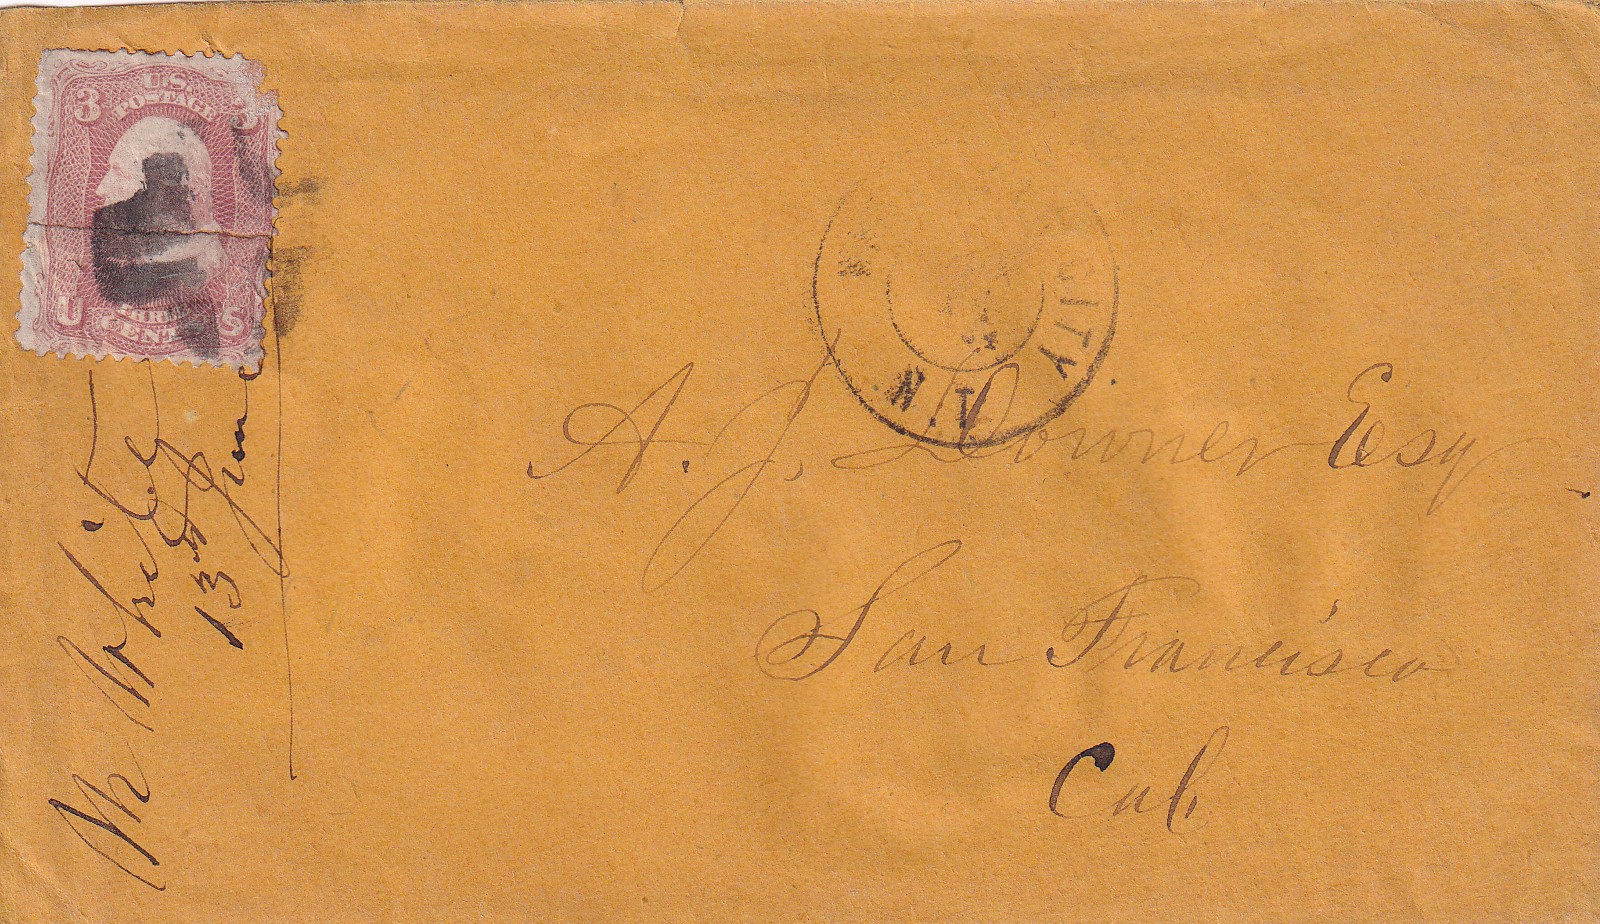 U.S.
POSTAGE
3
THREE
CENTS
U S
CITY
N.T.
A. J. Downer Esq
San Francisco
Cal
Wm White
13 June